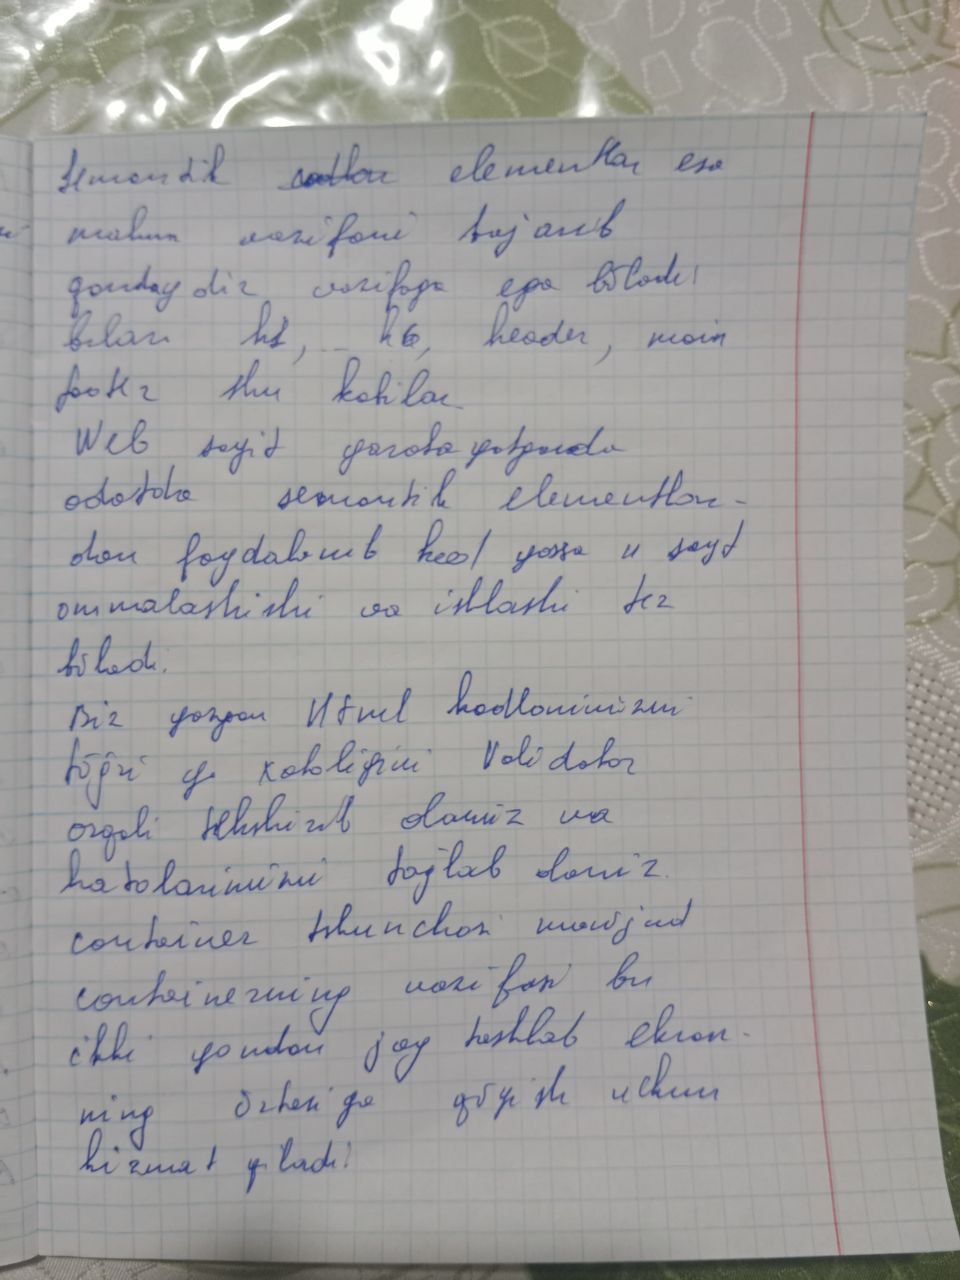 Semantik elementlar esa
malum vazifani bajarib
qandaydir vazifaga ega bõladi
bilan h1, .. h6, header, main
footer shu kabilar.
Web sayit yaratayotganda
odatda semantik elementlar-
dan foydalanib kod yozsa u sayt
ommalashishi va ishlashi tez
bõladi.
Biz yozgan Html kodlarimizni
tõğri yo xatoligini Validator
orqali tekshirib olamiz va
hatolarimizni toğlab olamiz.
conteiner tshunchasi mavjud
conteinerning vazifasi bu
ikki yondan joy tashlab ekran-
ning õrtasiga qõyish uchun
hizmat qiladi!